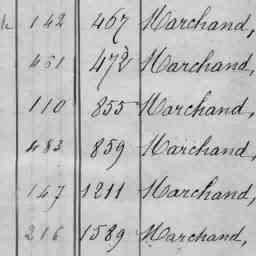 142 467 Marchand,
461 472 Marchand,
110 855 Marchand,
483 859 Marchand,
147 1211 Marchand,
216 1589 Marchand,